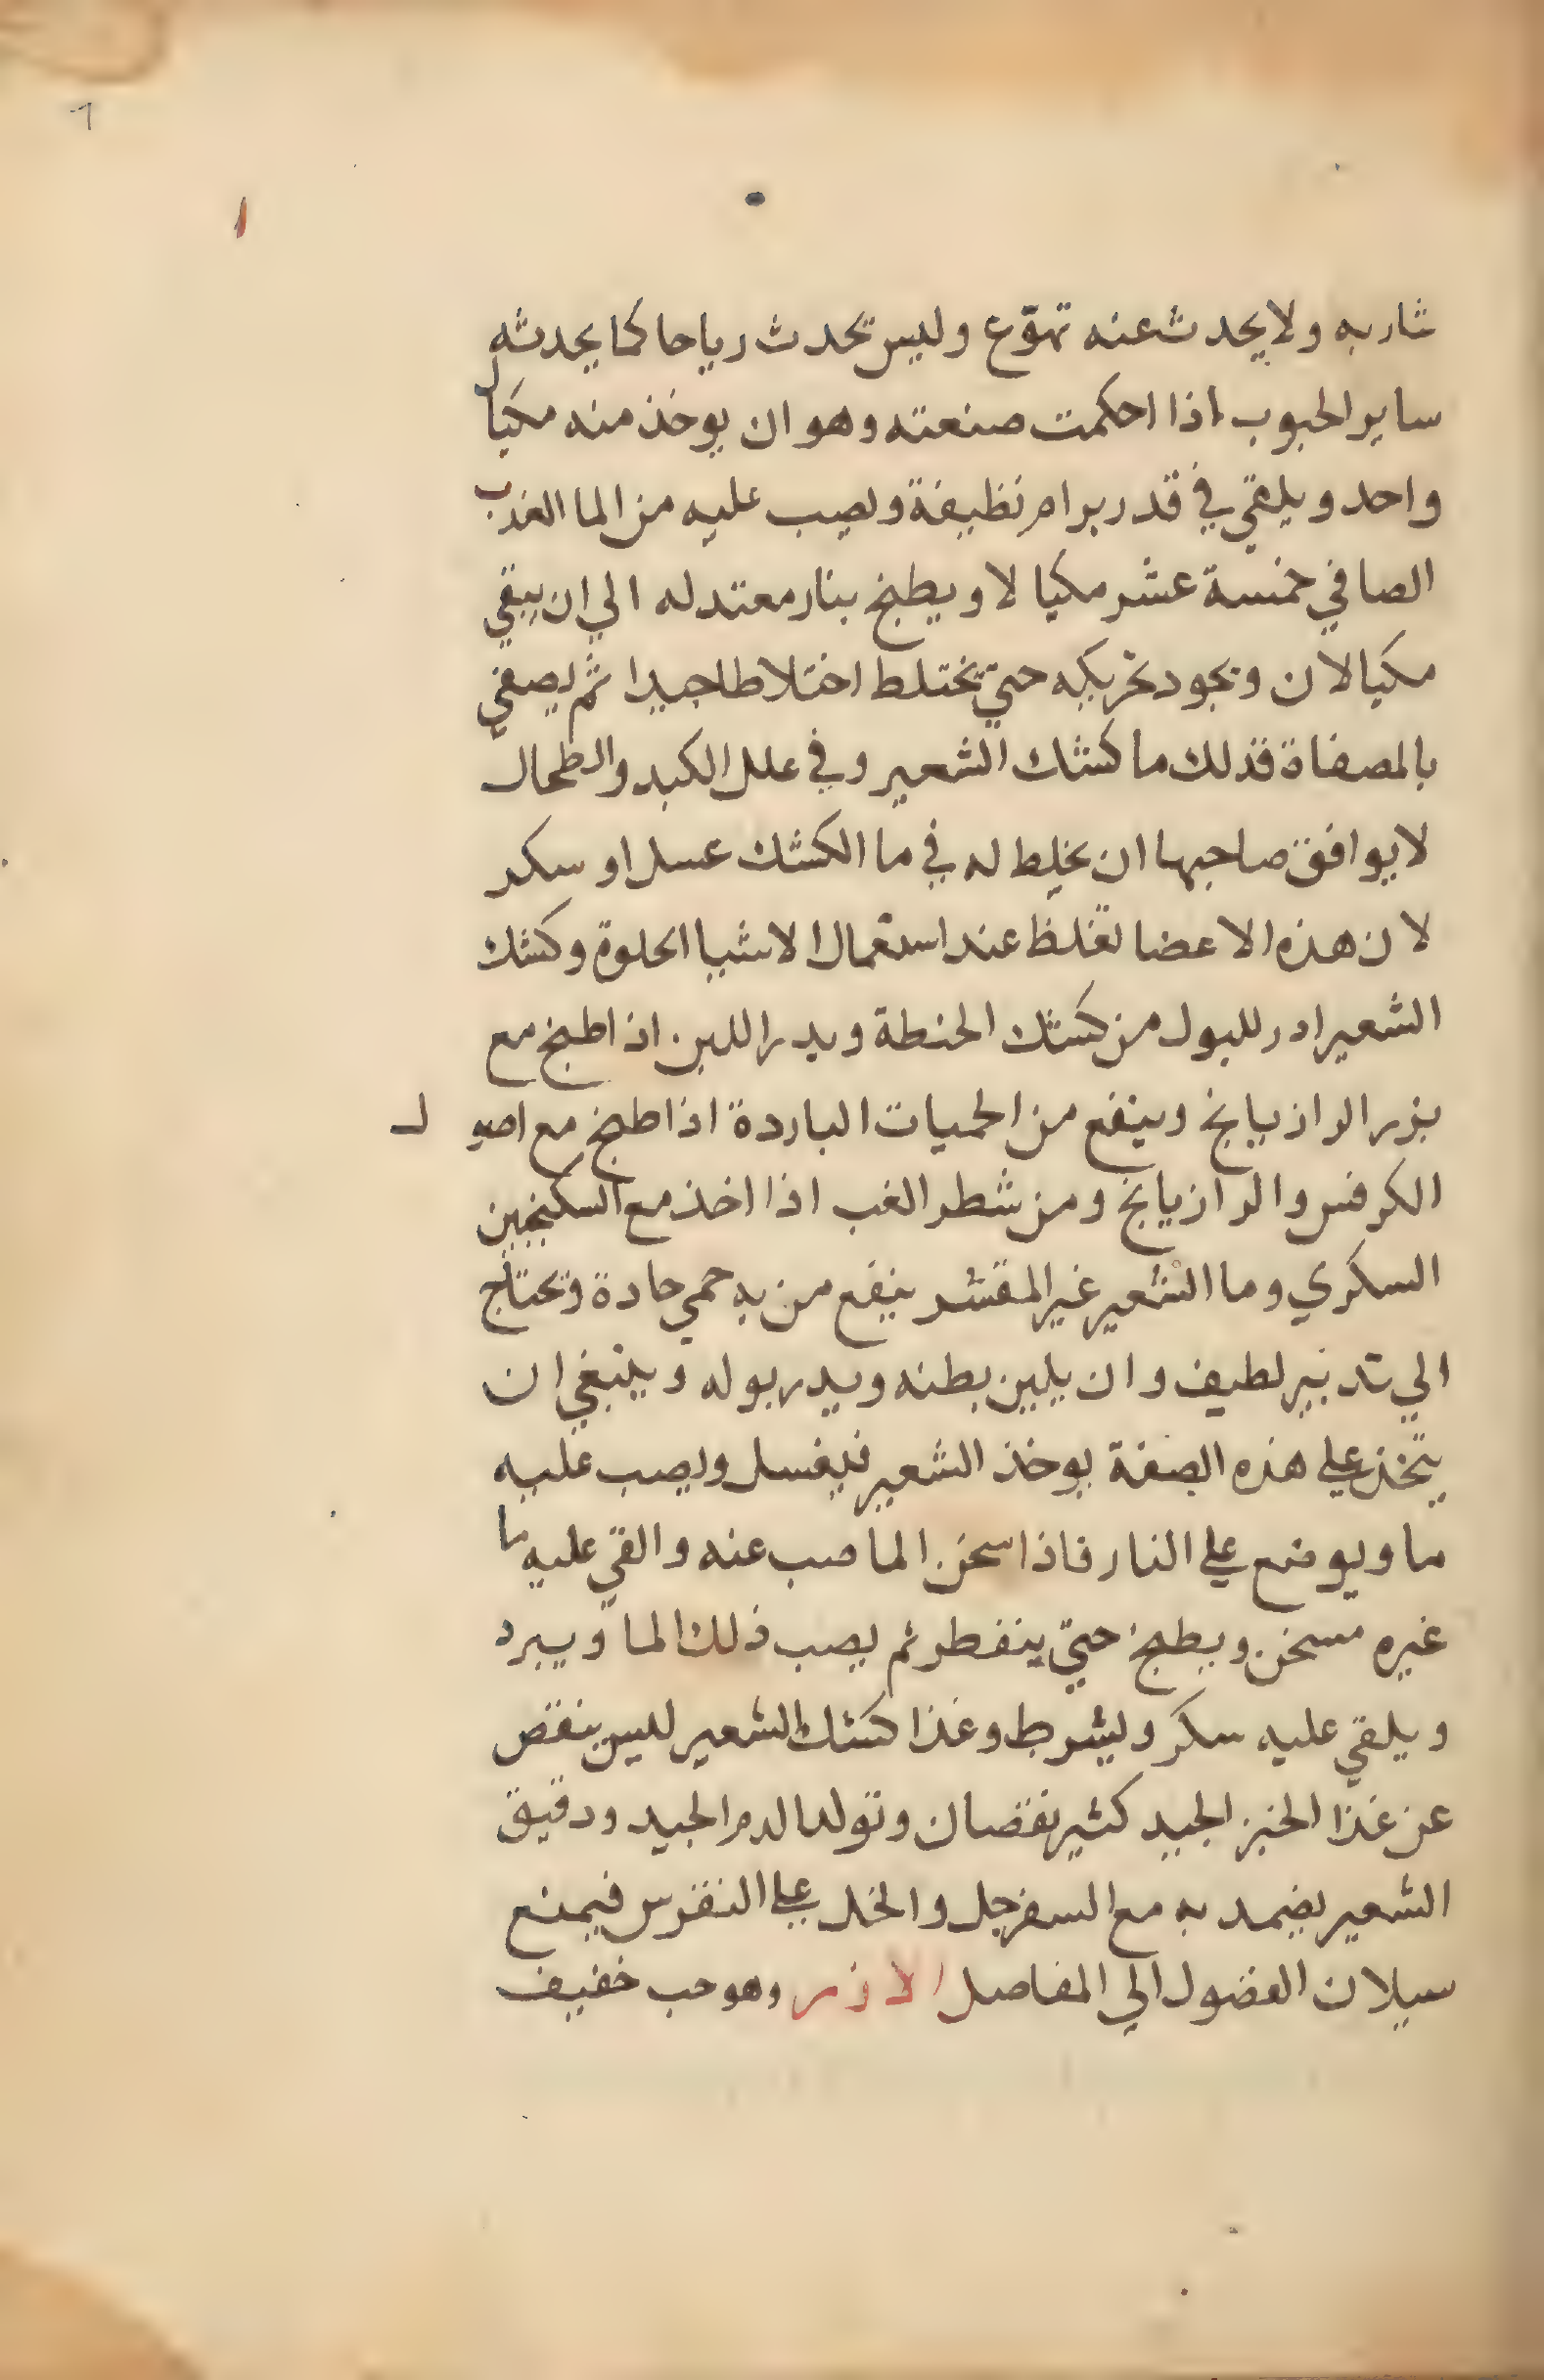 1
١
شاربه ولا يحدث عنه تهوّع وليس تحدث رياحا كما يحدثه
ساير الحبوب اذا احكمت صنعته وهو ان يوخذ منه مكيال
واحد ويلقي في قدر برام نظيفة ويصب عليه من الما العذب
الصافي خمسة عشر مكيالا ويطبخ بنار معتدله الي ان يبقي
مكيالان ويجود تحريكه حتي يختلط اختلاطا جيدا ثم يصفي
بالمصفاة فذلك ما كشك الشعير وفي علل الكبد والطحال
لا يوافق صاحبها ان يخلط له في ما الكشك عسل او سكر
لان هذه الاعضا تغلظ عند استعمال الاشيا الحلوة وكشك
الشعير ادر للبول من كشك الحنطة ويدر اللبن اذا طبخ مع
بزر الرازيانج وينفع من الحميات الباردة اذا طبخ مع اصول
الكرفس والرازيانج ومن شطر الغب اذا اخذ مع السكنجبين
السكري وما الشعير غير المقشر ينفع من به حمي حادة وتحتاج
الي تدبير لطيف وان يلين بطنه ويدر بوله وينبغي ان
يتخذ علي هذه الصفة يوخذ الشعير فيغسل ويصب عليه
ما ويوضع علي النار فاذا سخن الما صب عنه والقي عليه ما
غيره مسخن ويطبخ حتي ينفطر ثم يصب ذلك الما ويبرد
ويلقي عليه سكر وليشرط وغذا كشك الشعير ليس ينقص
عن غذا الخبز الجيد كثير نقصان وتولد الدم الجيد ودقيق
الشعير يضمد به مع السفرجل والخل علي النقرس فيمنع
سيلان الفضول الي المفاصل الارز وهو حب خفيف